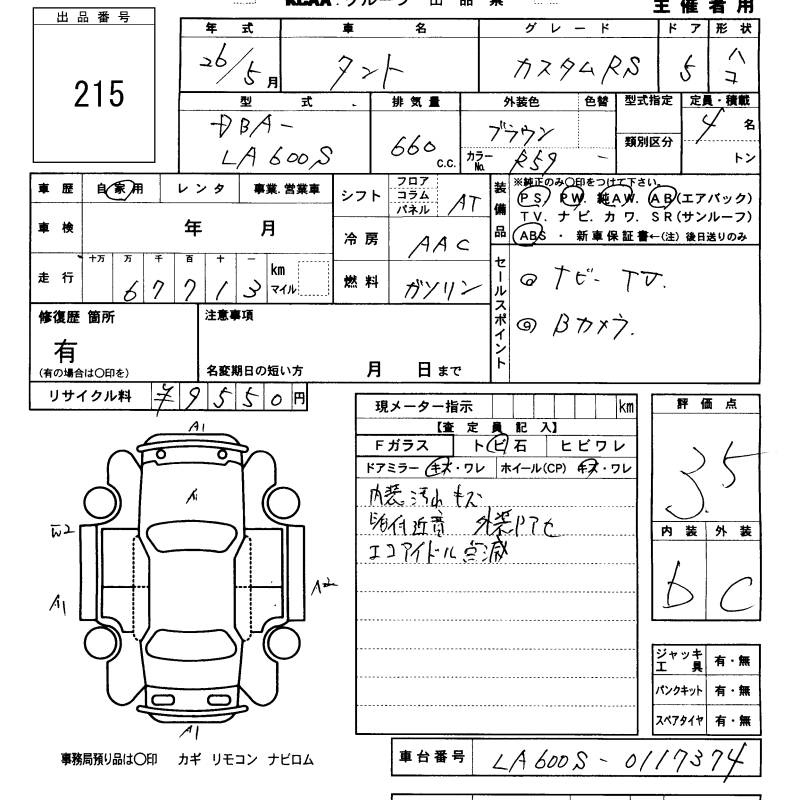 KCAA グループ 出品票
主催者用
出品番号
215
年式 車名 グレード ドア 形状
26/5月 タント カスタムRS 5 ハコ
型式 排気量 外装色 色替 型式指定 定員・積載
DBA-
LA600S 660 C.C. ブラウン 類別区分 4名
カラーNo. R59 - トン
車歴 自家用 レンタ 事業.営業車
シフト フロア コラム パネル AT
装備品 ※純正のみ○印をつけて下さい。
PS. PW. 純AW. AB(エアバック)
TV. ナビ. カワ. SR(サンルーフ)
ABS ・ 新車保証書←(注) 後日送りのみ
車検 年 月
冷房 AAC
走行 十万 万 千 百 十 一 km マイル
67713
燃料 ガソリン
セールスポイント
◎ ナビ- TV.
◎ Bカメラ.
修復歴 箇所
有
(有の場合は○印を)
注意事項
名変期日の短い方 月 日まで
リサイクル料 ¥9550円
現メーター指示 km
【査定員記入】
Fガラス トビ石 ヒビワレ
ドアミラー キズ・ワレ ホイール(CP) キズ・ワレ
内装汚れ キズ
エコアイドル点滅
評価点
3.5
内装 外装
b C
A1
A1
W2
A1
A2
A1
ジャッキ工具 有・無
パンクキット 有・無
スペアタイヤ 有・無
事務局預り品は○印 カギ リモコン ナビロム
車台番号 LA600S-0117374